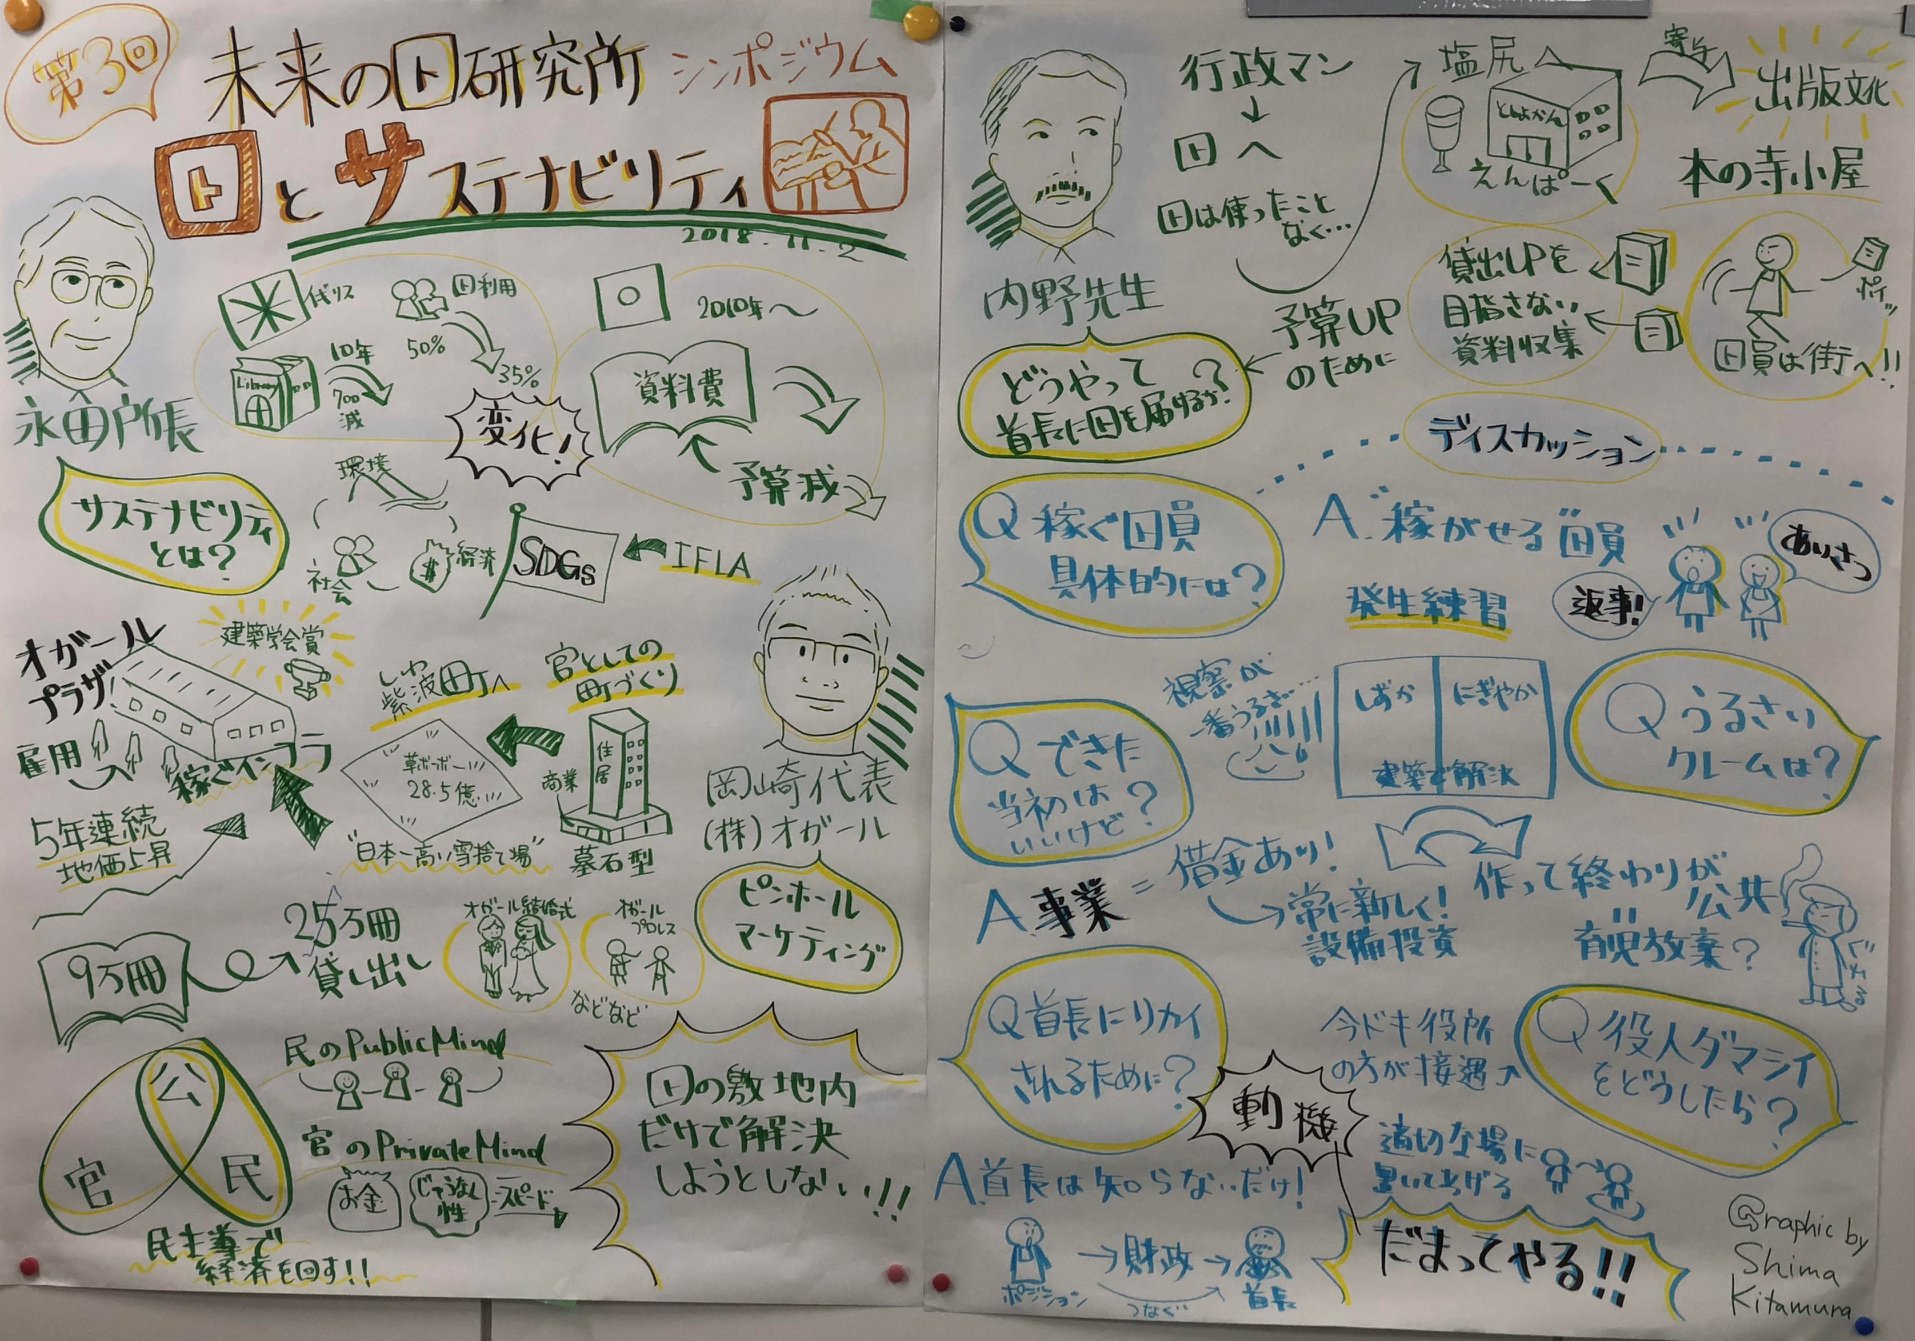 第3回
未来の図研究所 シンポジウム
図とサステナビリティ
2018.11.2
永田所長
イギリス
図利用
50%
35%
Library
10年
700
減
変化!
2010年〜
資料費
予算減
サステナビリティ
とは?
環境
社会
経済
$
SDGs
IFLA
オガール
プラザ
建築学会賞
雇用
稼ぐインフラ
5年連続
地価上昇
しわ
紫波町へ
草ボーボー
28.5億
"日本一高い雪捨て場"
官としての
町づくり
商業
住居
墓石型
岡崎代表
(株)オガール
ピンホール
マーケティング
9万冊
25万冊
貸し出し
オガール結婚式
オガール
プロレス
などなど
公
官
民
民のPublicMind
官のPrivateMind
お金
じゅうなん
性
スピード
民主導で
経済を回す!!
図の敷地内
だけで解決
しようとしない!!
内野先生
行政マン
↓
図へ
図は使ったこと
なく…
塩尻
としょかん
えんぱーく
寄与
出版文化
本の寺小屋
貸出UPを
目指さない
資料収集
ポイッ
図員は街へ!!
予算UP
のために
どうやって
首長に図を届けるか?
ディスカッション
Q 稼ぐ図員
具体的には?
A."稼がせる"図員
発生練習
返事!
あいさつ
Q うるさい
クレームは?
しずか
にぎやか
建築で解決
視察が
一番うるさい…
Q できた
当初は
いいけど?
A.事業=借金あり!
→常に新しく!
設備投資
作って終わりが公共
育児放棄?
Q 首長にリカイ
されるために?
A.首長は知らないだけ!
ポジション
→財政→
つなぐ
首長
動機
Q 役人ダマシイ
をどうしたら?
今ドキ役所
の方が接遇↗
適切な場に
置いてあげる
だまってやる!!
Graphic by
Shima
Kitamura